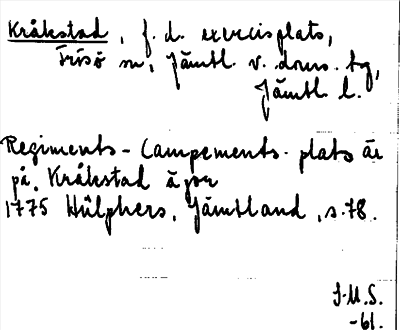 Kråkstad, f. d. exercisplats,
Frösö sn, Jämtl. v. doms. tg,
Jämtl l.
Regiments-Campements-plats är
på Kråkstad ägor
1775 Hülphers, Jämtland, s. 78.
J.M.S.
-61.